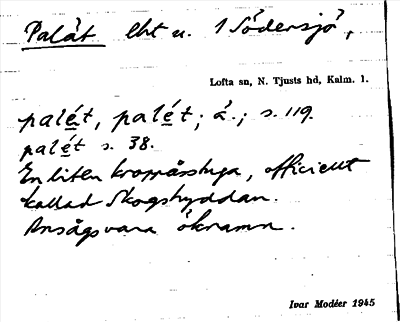 Palát eht u. 1 Södersjö,
Lofta sn, N. Tjusts hd, Kalm. l.
palét, palét; á.; s. 119.
palét s. 38.
En liten kronobsstuga, officiellt
kallad Skogshyddan.
Ansågs vara öknamn.
Ivar Modéer 1945